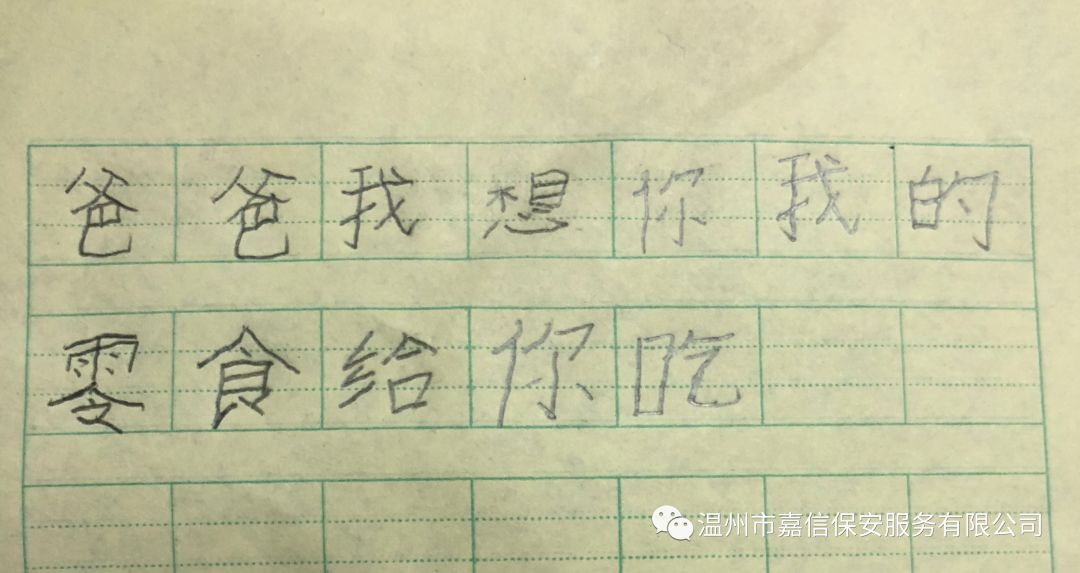 爸爸我想你我的
零食给你吃
温州市嘉信保安服务有限公司